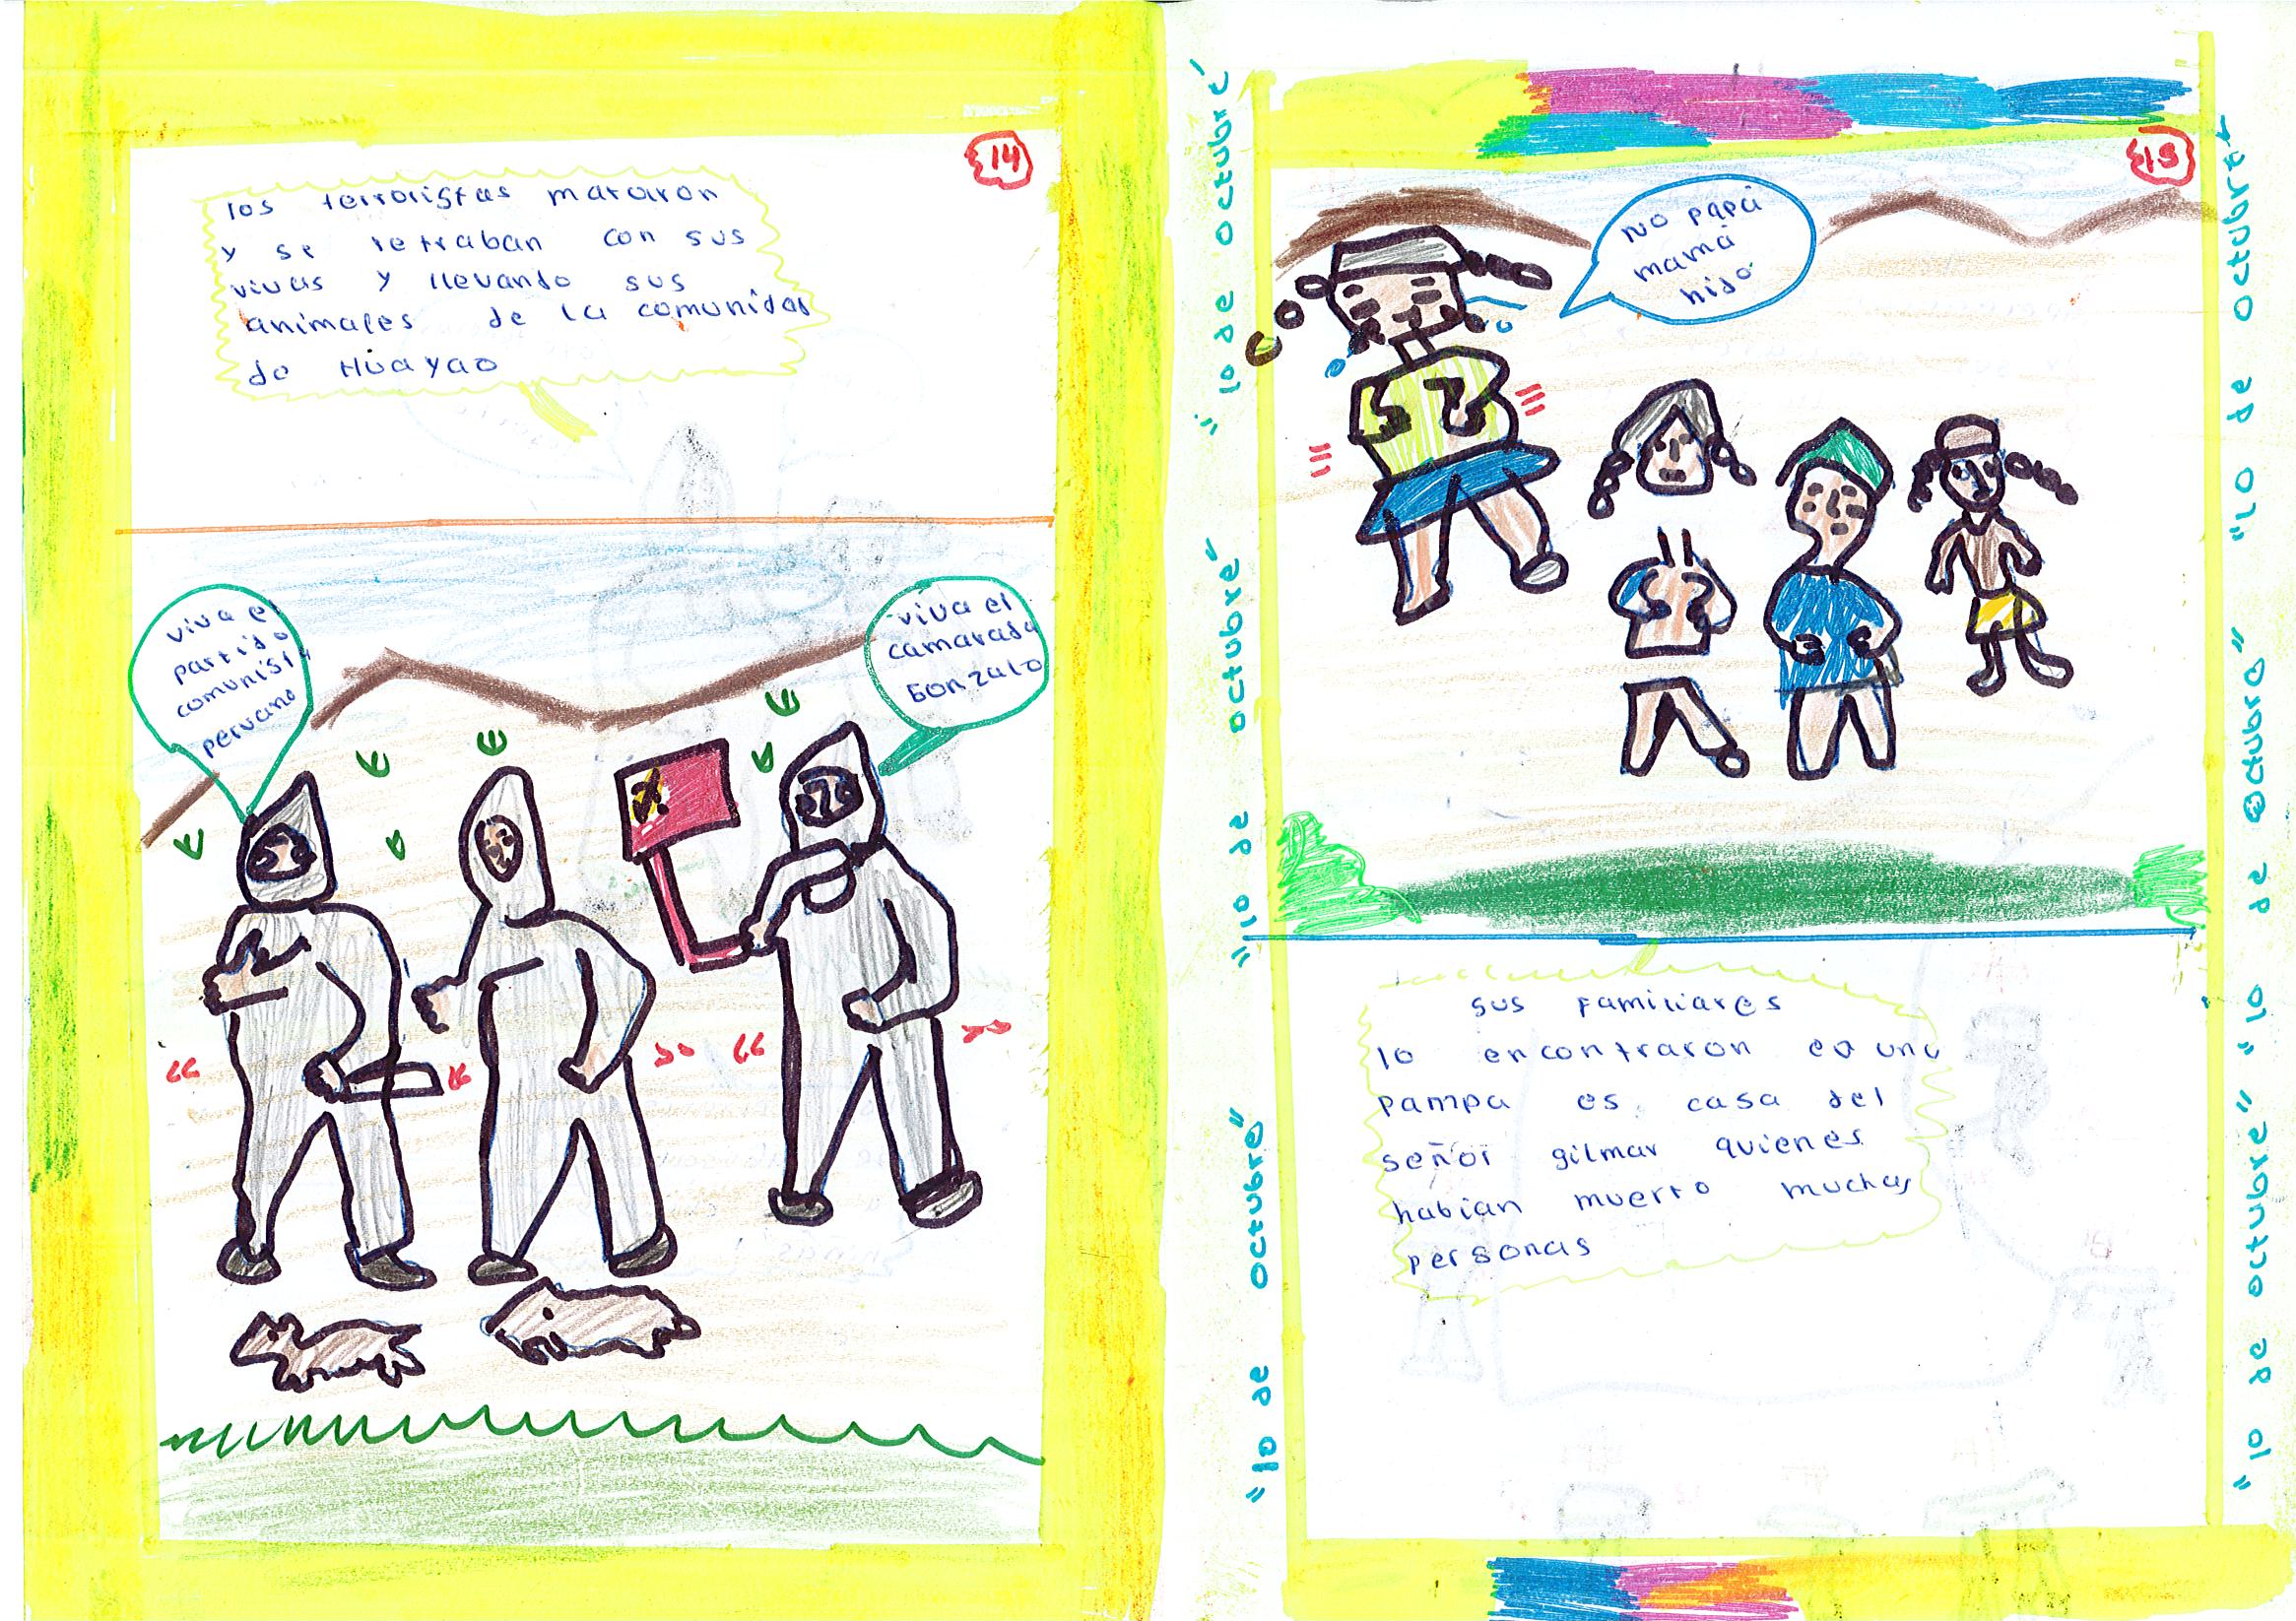 14
los terroristas mataron
y se retraban con sus
vivas y llevando sus
animales de la comunidad
de Huayao
viva el
partido
comunista
peruano
viva el
camarada
Gonzalo
"10 de octubre"
"10 de octubre"
"10 de octubre"
15
No papá
mamá
hijo
sus familiares
lo encontraron en una
pampa es casa del
señor gilmar quienes
habian muerto muchas
personas
"10 de octubre"
"10 de octubre"
"10 de octubre"